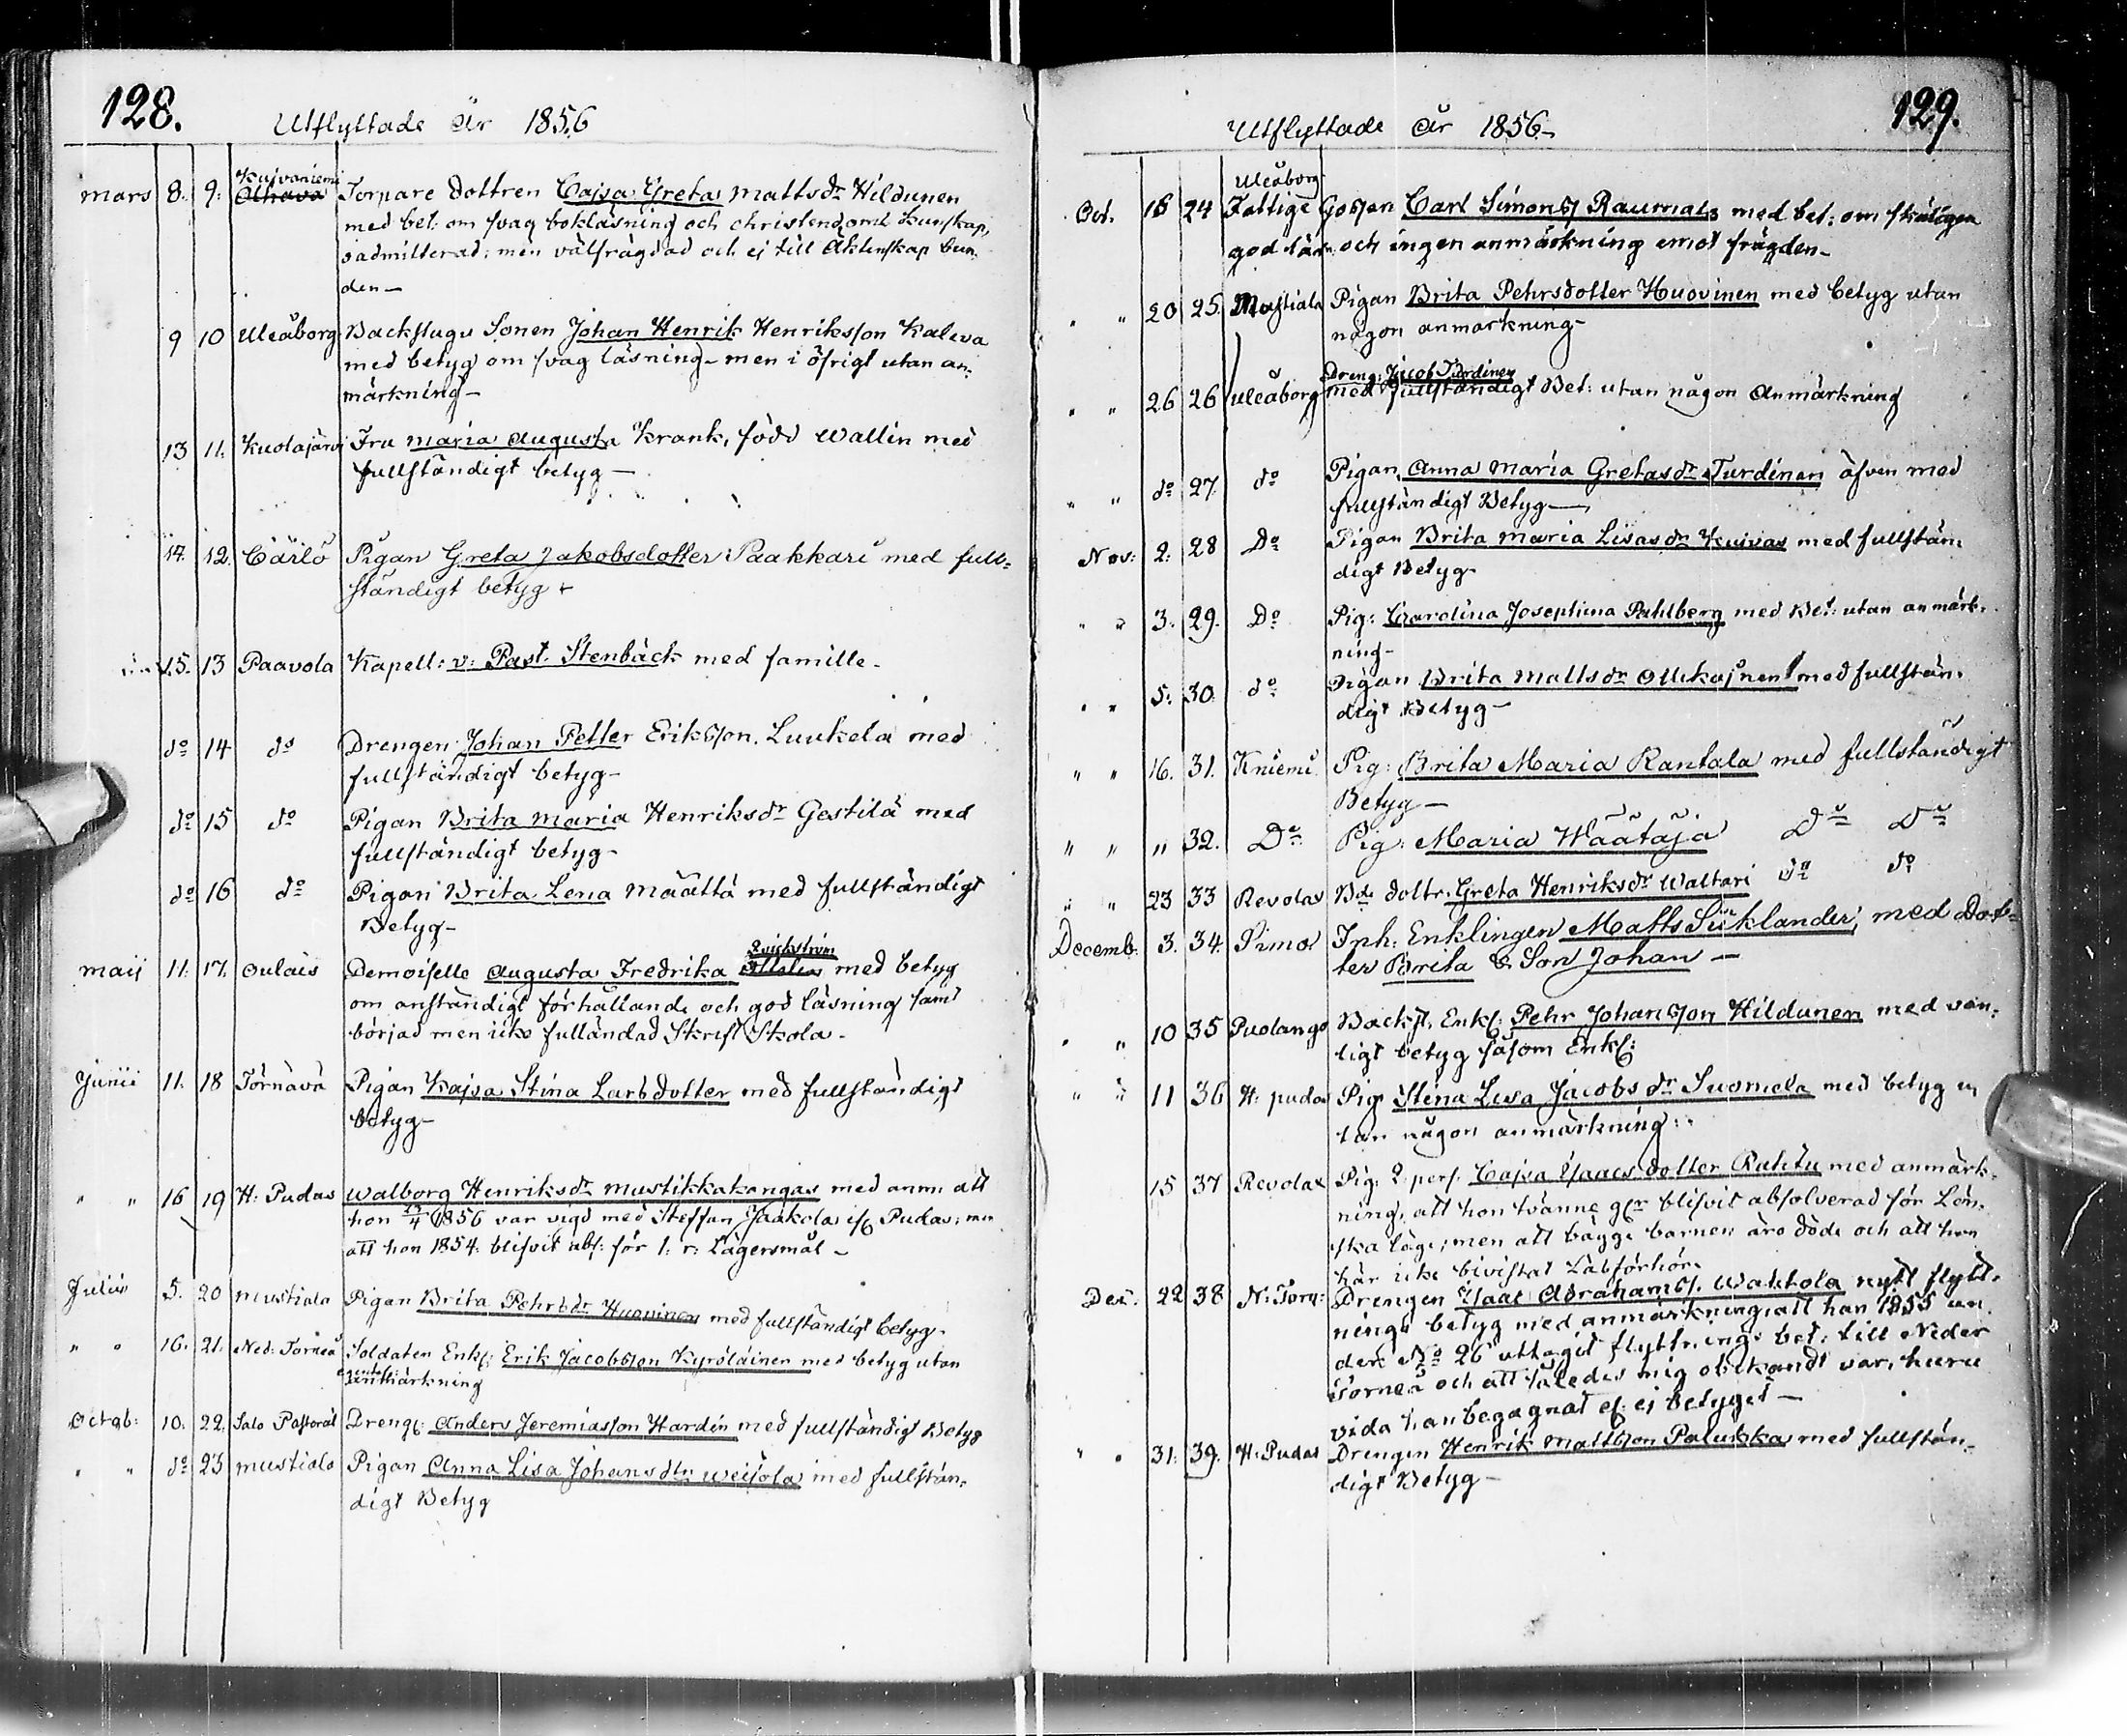 128.
Utflyttade år 1856
mars 8. 9. Kuivaniemi Torpare dottren Cajsa Greta Mattsdr Hildunen
med bet: om svag bokläsning och christendoms kunskap,
oadmitterad; men välfrägdad och ej till Äktenskap bun-
den—
9 10 Uleåborg Backstugu Sonen Johan Henrik Henriksson Kaleva
med betyg om svag läsning - men i öfrigt utan an-
märkning—
13 11. Kuolajärvi Fru Maria Augusta Krank, född Wallin med
fullständigt betyg—
14. 12. Carlö Pigan Greta Jakobsdotter Paakkari med full-
ständigt betyg
15. 13 Paavola Kapell: v: Past. Stenbäck med famille.
do 14 do Drengen Johan Petter Eriksson Luukela med
fullständigt betyg—
do 15 do Pigan Brita Maria Henriksdr Gestilä med
fullständigt betyg—
do 16 do Pigan Brita Lena Määttä med fullständigt
Betyg—
maij 11. 17. Oulais Demoiselle Augusta Fredrika med betyg
om anständigt förhållande och god läsning samt
börjad men icke fulländad Skrift Skola.
Junii 11. 18 Törnävä Pigan Kajsa Stina Larsdotter med fullständigt
betyg—
" " 16 19 H: Pudas Walborg Henriksdr Mustikkakangas med anm: att
hon 1856 var vigd med Steffan Jaakola i Pudas; men
att hon 1854 blifvit abs: för 1: r: Lägersmål—
Julii 5. 20 Mustiala Pigan Brita Pehrsdr Huovinen med fullständigt betyg.
" " 16. 21. Ned: Torneå Soldaten Enkl: Erik Jacobsson Kyröläinen med betyg utan
anmärkning
Octob: 10. 22. Salo Pastorat Dreng: Anders Jeremiasson Hardin med fullständigt Betyg
" " do 23 Mustiala Pigan Anna Lisa Johansdtr Weijola med fullstän-
digt Betyg
129.
Utflyttade år 1856—
Uleåborg
Oct. 18 24 Fattige Gossen Carl Simonss Raumala med bet: om skäligen
god län och ingen anmärkning emot frägden—
" " 20 25. Mustiala Pigan Brita Pehrsdotter Huovinen med betyg utan
någon anmärkning—
Dreng: Jacob Turdinen
" " 26 26 Uleåborg med fullständigt Bet: utan någon Anmärkning
" " do 27. do Pigan Anna Maria Gretasdr Turdinen äfven med
fullständigt Betyg—
Nov: 2. 28 Do Pigan Brita Maria Lisasdr Kuivas med fullstän-
digt Betyg—
" " 3. 29. Do Pig: Carolina Josephina Pahlberg med Bet: utan anmärk-
ning—
" " 5. 30 do Pigan Brita Mattsdr Ollikajnen med fullstän-
digt Betyg—
" " 16. 31. Kniemi Pig: Brita Maria Rantala med fullständigt
Betyg—
" " " 32. Do Pig: Maria Wäätäjä Do Do
" " 23 33 Revolax Bde dottr. Greta Henriksdr Waltari do do
Decemb. 3. 34. Simo Inh: Enklingen Matts Siiklander, med Dot-
ter Brita & Son Johan—
" " 10 35 Puolango Backst. Enkl: Pehr Johansson Hildunen med van-
ligt betyg såsom Enkl:
" " 11 36 H: pudas Pig: Stina Lisa Jacobsdr Suomela med betyg u
tan någon anmärkning:
15 37 Revolax Pig: 2. pers. Cajsa Isaacsdotter Rahtu med anmärk-
ning, att hon tvänne gr blifvit absolverad för Lön-
ska läge; men att bägge barnen äro döde och att hon
här icke bivistat Läsförhör.
Dec. 22 38 N: Torn: Drengen Isaac Abrahamss. Wahtola nytt flytt-
nings betyg med anmärkning att han 1855 un
der No 26 uttagit flyttnings bet: till Neder
Torneå och att således mig obekandt var, huru
vida han begagnat el: ej betyget—
" " 31. 39. H: Pudas Drengen Henrik Mattsson Palukka med fullstän-
digt Betyg—